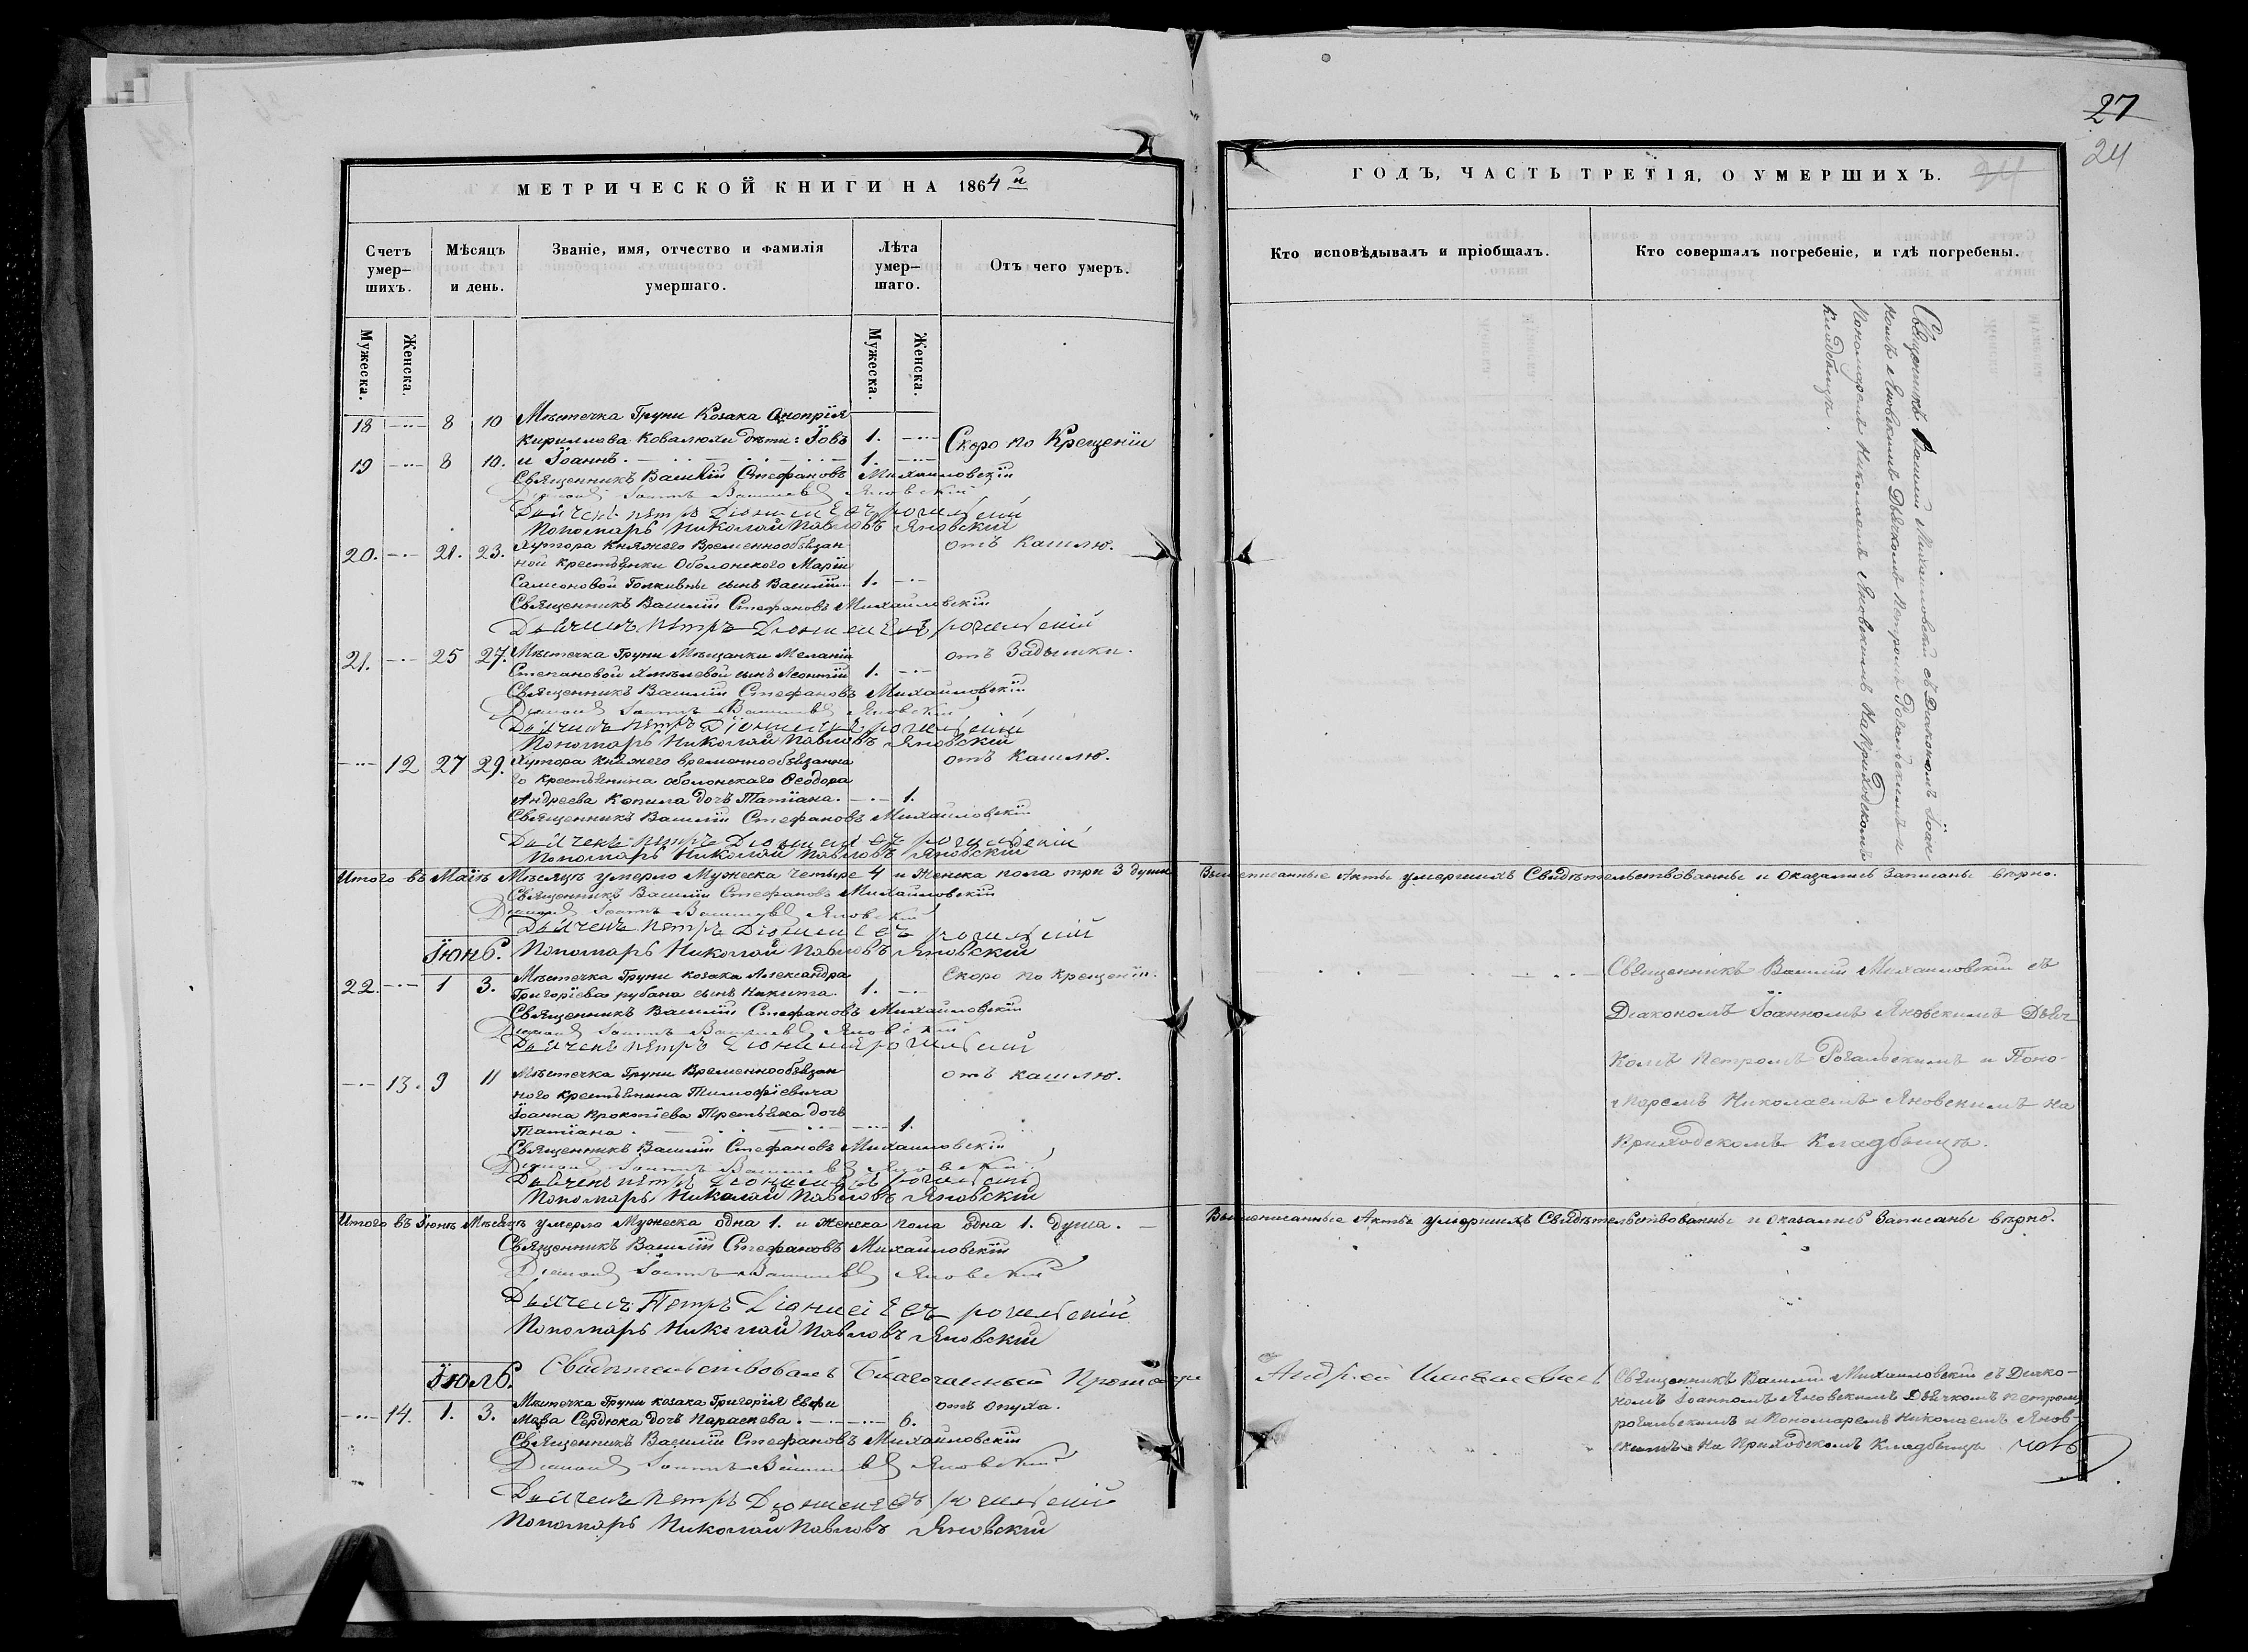 27
24
24
МЕТРИЧЕСКОЙ КНИГИ НА 1864й
Счетъ умер-
шихъ.
Мѣсяцъ
и день.
Званіе, имя, отчество и фамилія
умершаго.
Лѣта
умер-
шаго.
Отъ чего умеръ.
Мужеска.
Женска.
Мужеска.
Женска.
18 8 10 Мѣстечка Груни Козака Онопрія
Кириллова Ковалюхи дѣти: Іовъ 1. Скоро по Крещеніи
19 8 10. и Іоаннъ. 1.
Священникъ Василій Стефановъ Михайловскій
Діаконъ Іоаннъ Васильевъ Яновскій
Дьячекъ Петръ
Пономарь Николай Павловъ Яновскій
20. 21. 23. Хутора Княжего Временнообязан отъ Кашлю.
ной крестьянки Оболонского Маріи
Самсоновой сынъ Василій. 1.
Священникъ Василій Стефановъ Михайловскій
Дьячекъ Петръ
21. 25 27. Мѣстечка Груни Мѣщанки Меланіи отъ Задышки.
Степановой сынъ Леонтій 1.
Священникъ Василій Стефановъ Михайловскій
Діаконъ Іоаннъ Васильевъ Яновскій
Дьячекъ Петръ
Пономарь Николай Павловъ Яновскій
12 27 29. Хутора Княжего временнообязанна отъ Кашлю.
го крестьянина оболонскаго Ѳеодора
Андреева Копила дочь Татіана. 1.
Священникъ Василій Стефановъ Михайловскій
Дьячекъ Петръ
Пономарь Николай Павловъ Яновскій
Итого въ Маіѣ Мѣсяцѣ умерло Мужеска четыре 4 и Женска пола три 3 души
Священникъ Василій Стефановъ Михайловскій
Діаконъ Іоаннъ Васильевъ Яновскій
Дьячекъ Петръ
Іюнь. Пономарь Николай Павловъ Яновскій
22. 1 3. Мѣстечка Груни козака Александра Скоро по крещеніи.
Григоріева рубана сынъ Никита. 1.
Священникъ Василій Стефановъ Михайловскій
Діаконъ Іоаннъ Васильевъ Яновскій
Дьячекъ Петръ
13. 9 11 Мѣстечка Груни Временнообязан отъ кашлю.
ного крестьянина Тимофіевича
Іоанна Прокопіева Третьяка дочь
Татіана. 1.
Священникъ Василій Стефановъ Михайловскій
Діаконъ Іоаннъ Васильевъ Яновскій
Дьячекъ Петръ
Пономарь Николай Павловъ Яновскій
Итого въ Іюнѣ Мѣсяцѣ умерло Мужеска одна 1. и Женска пола одна 1. душа.
Священникъ Василій Стефановъ Михайловскій
Діаконъ Іоаннъ Васильевъ Яновскій
Дьячекъ Петръ
Пономарь Николай Павловъ Яновскій
Іюль. Свидѣтельствовалъ Благочинный
14. 1. 3. Мѣстечка Груни козака Григорія Евфи отъ опуха.
мова Сердюка дочь Параскева. 6.
Священникъ Василій Стефановъ Михайловскій
Діаконъ Іоаннъ Васильевъ Яновскій
Дьячекъ Петръ
Пономарь Николай Павловъ Яновскій
ГОДЪ, ЧАСТЬ ТРЕТІЯ, О УМЕРШИХЪ.
Кто исповѣдывалъ и пріобщалъ.
Кто совершалъ погребеніе, и гдѣ погребены.
Священникъ Василій Михайловскій съ Діакономъ Іоан
номъ Яновскимъ Дьячкомъ Петромъ Рогальскимъ и
Пономаремъ Николаемъ Яновскимъ На Приходскомъ
Кладбищѣ.
Вышеписанные Акты умершихъ Свидѣтельствованны и Оказались Записаны вѣрно.
Священникъ Василій Михайловскій съ
Діакономъ Іоанномъ Яновскимъ Дьяч
комъ Петромъ Рогальскимъ и Поно-
маремъ Николаемъ Яновскимъ на
Приходскомъ Кладбыщѣ.
Вышеписанные Акты умершихъ Свидѣтельствованны и Оказались Записаны вѣрно.
Андрей
Священникъ Василій Михайловскій съ Діако-
номъ Іоанномъ Яновскимъ Дьячкомъ Петромъ
рогальскимъ и Пономаремъ Николаемъ Янов-
скимъ На Приходскомъ Кладбыщѣ